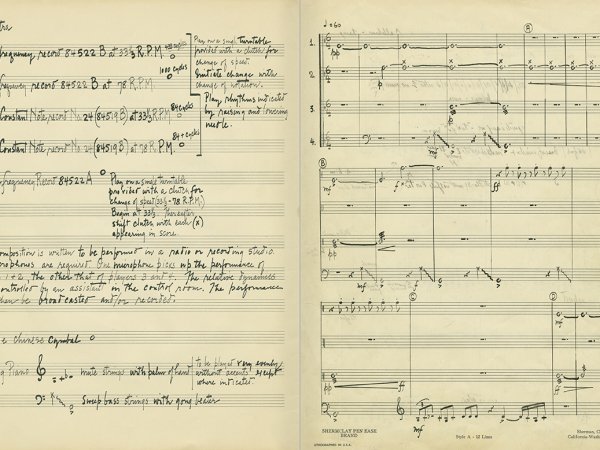 frequency, record 84522 B at 33⅓ R.P.M.
1000 cycles
frequency record 84522 B at 78 R.P.M.
Constant Note record No. 24 (84519 B) at 33⅓ R.P.M.
84 cycles
Constant Note record No. 24 (84519 B) at 78 R.P.M.
84+ cycles
Play on a single turntable
provided with a clutch for
change of speed.
Initiate change with
change of notation.
Play rhythms indicated
by raising and lowering
needle.
frequency Record 84522 A
Play on a single turntable
provided with a clutch for
change of speed (33⅓ - 78 R.P.M.)
Begin at 33⅓ thereafter
shift clutch with each (x)
appearing in score.
composition is written to be performed in a radio or recording studio.
microphones are required. One microphone picks up the performance of
1 + 2, the other that of players 3 and 4. The relative dynamics
controlled by an assistant in the control room. The performance
then be broadcasted and/or recorded.
Chinese Cymbal
Piano
mute strings with palm of hand
to be played very evenly,
without accents except
where indicated.
Sweep bass strings with gong beater
♩ = 60
A
1.
2.
3.
4.
mp
B
ff
mf
C
D
mf
ff
mf
SHERMCLAY PEN EASE
BRAND
LITHOGRAPHED IN U.S.A.
Style A - 12 Lines
Sherman, Cl
California-Wash